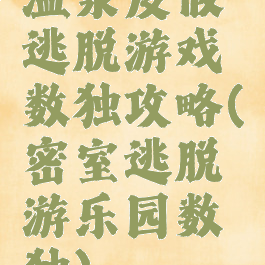 温泉度假
逃脱游戏
数独攻略(
密室逃脱
游乐园数
独)